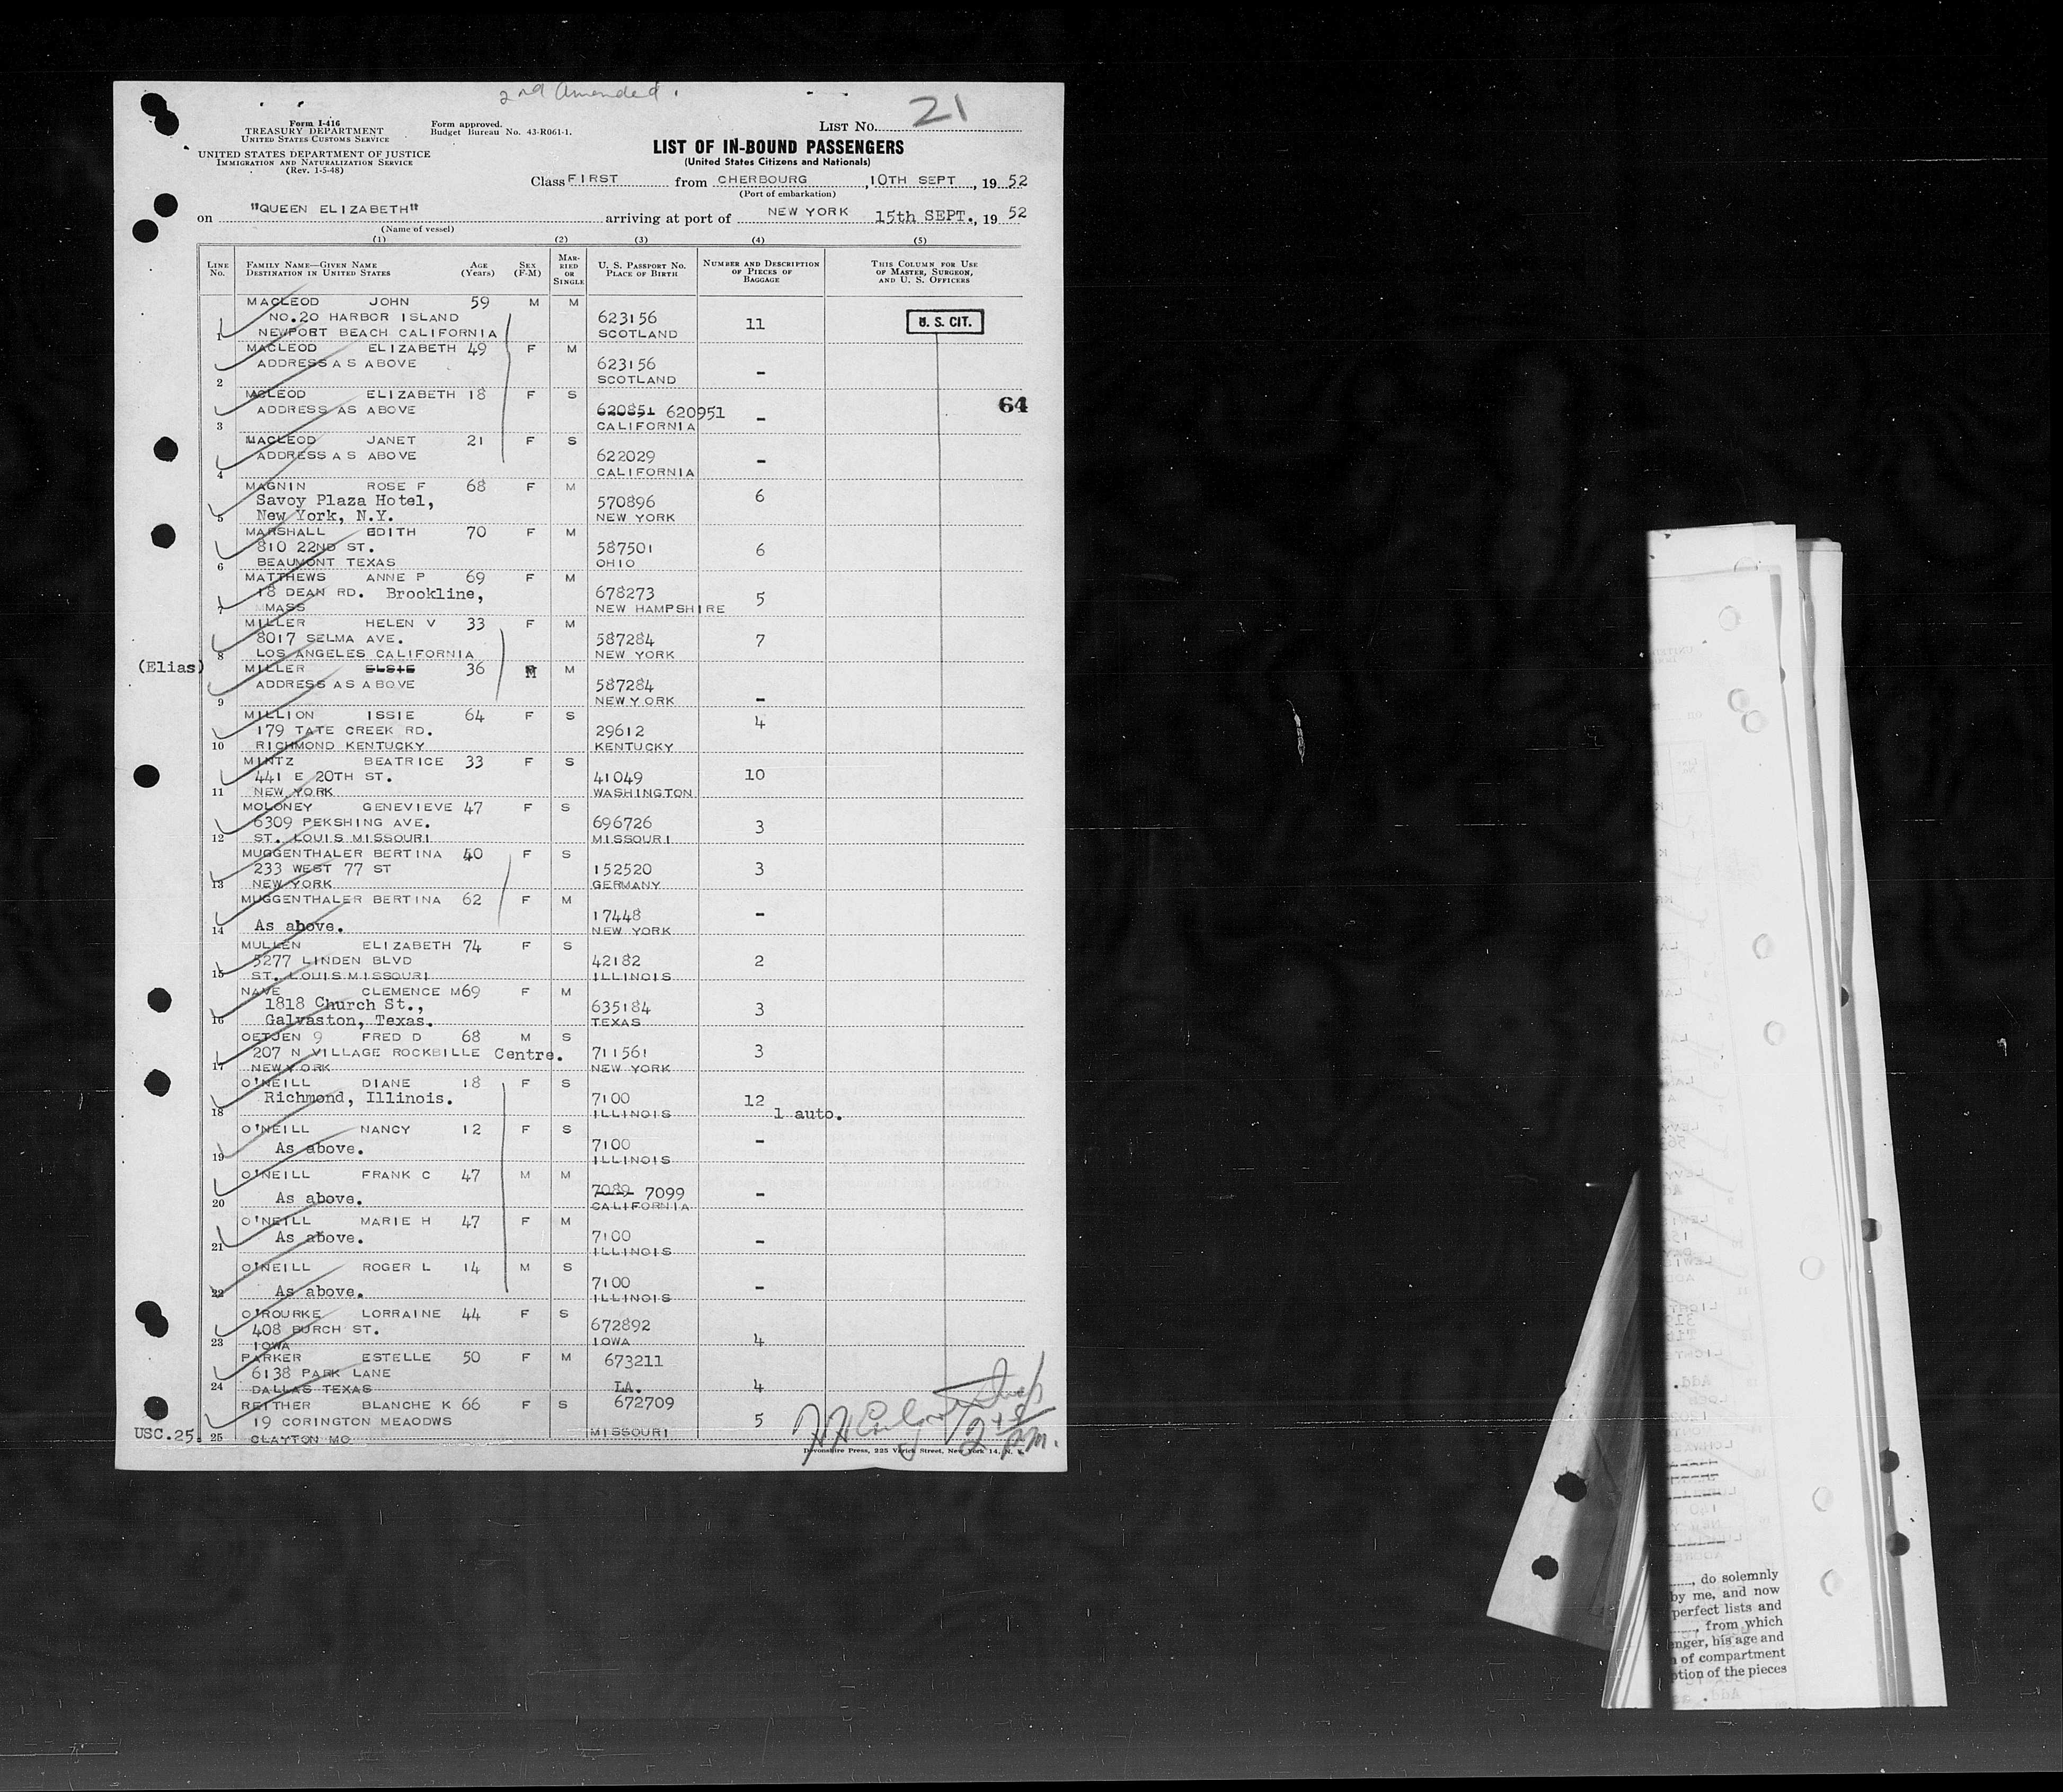 2nd Amended.
Form I-416
TREASURY DEPARTMENT
UNITED STATES CUSTOMS SERVICE
Form approved.
Budget Bureau No. 43-R061-1.
LIST No. 21
UNITED STATES DEPARTMENT OF JUSTICE
IMMIGRATION AND NATURALIZATION SERVICE
(Rev. 1-5-48)
LIST OF IN-BOUND PASSENGERS
(United States Citizens and Nationals)
Class FIRST from CHERBOURG, 10TH SEPT, 19 52
(Port of embarkation)
on "QUEEN ELIZABETH" arriving at port of NEW YORK 15th SEPT., 19 52
(Name of vessel)
(1) (2) (3) (4) (5)
LINE No. FAMILY NAME—GIVEN NAME DESTINATION IN UNITED STATES AGE (Years) SEX (F-M) MARRIED OR SINGLE U. S. PASSPORT NO. PLACE OF BIRTH NUMBER AND DESCRIPTION OF PIECES OF BAGGAGE THIS COLUMN FOR USE OF MASTER, SURGEON, AND U. S. OFFICERS
MACLEOD JOHN 59 M M
NO.20 HARBOR ISLAND 623156 11 U. S. CIT.
1 NEWPORT BEACH CALIFORNIA SCOTLAND
MACLEOD ELIZABETH 49 F M
ADDRESS A S ABOVE 623156 -
2 SCOTLAND
MCLEOD ELIZABETH 18 F S 64
ADDRESS AS ABOVE 620851 620951 -
3 CALIFORNIA
MACLEOD JANET 21 F S
ADDRESS A S ABOVE 622029 -
4 CALIFORNIA
MAGNIN ROSE F 68 F M
Savoy Plaza Hotel, 570896 6
5 New York, N.Y. NEW YORK
MARSHALL EDITH 70 F M
810 22ND ST. 587501 6
6 BEAUMONT TEXAS OHIO
MATTHEWS ANNE P 69 F M
18 DEAN RD. Brookline, 678273 5
7 MASS NEW HAMPSHIRE
MILLER HELEN V 33 F M
8017 SELMA AVE. 587284 7
8 LOS ANGELES CALIFORNIA NEW YORK
(Elias) MILLER ELSIE 36 M M
ADDRESS AS ABOVE 587284 -
9 NEW YORK
MILLION ISSIE 64 F S 4
179 TATE CREEK RD. 29612
10 RICHMOND KENTUCKY KENTUCKY
MINTZ BEATRICE 33 F S
441 E 20TH ST. 41049 10
11 NEW YORK WASHINGTON
MOLONEY GENEVIEVE 47 F S
6309 PEKSHING AVE. 696726 3
12 ST. LOUIS MISSOURI MISSOURI
MUGGENTHALER BERTINA 40 F S
233 WEST 77 ST 152520 3
13 NEW YORK GERMANY
MUGGENTHALER BERTINA 62 F M
17448 -
14 As above. NEW YORK
MULLEN ELIZABETH 74 F S
5277 LINDEN BLVD 42182 2
15 ST. LOUIS MISSOURI ILLINOIS
NAVE CLEMENCE M 69 F M
1818 Church St., 635184 3
16 Galvaston, Texas. TEXAS
OETJEN 9 FRED D 68 M S
207 N VILLAGE ROCKBILLE Centre. 711561 3
17 NEW YORK NEW YORK
O'NEILL DIANE 18 F S
Richmond, Illinois. 7100 12
18 ILLINOIS 1 auto.
O'NEILL NANCY 12 F S
As above. 7100 -
19 ILLINOIS
O'NEILL FRANK C 47 M M
As above. 7089 7099 -
20 CALIFORNIA
O'NEILL MARIE H 47 F M
As above. 7100 -
21 ILLINOIS
O'NEILL ROGER L 14 M S
As above. 7100 -
22 ILLINOIS
O'ROURKE LORRAINE 44 F S
408 BURCH ST. 672892
23 IOWA IOWA 4
PARKER ESTELLE 50 F M 673211
6138 PARK LANE
24 DALLAS TEXAS LA. 4
REITHER BLANCHE K 66 F S 672709
19 CORINGTON MEAODWS 5
USC.25. 25 CLAYTON MO MISSOURI
Devonshire Press, 225 Varick Street, New York 14, N. Y.
, do solemnly
by me, and now
perfect lists and
, from which
enger, his age and
of compartment
ption of the pieces